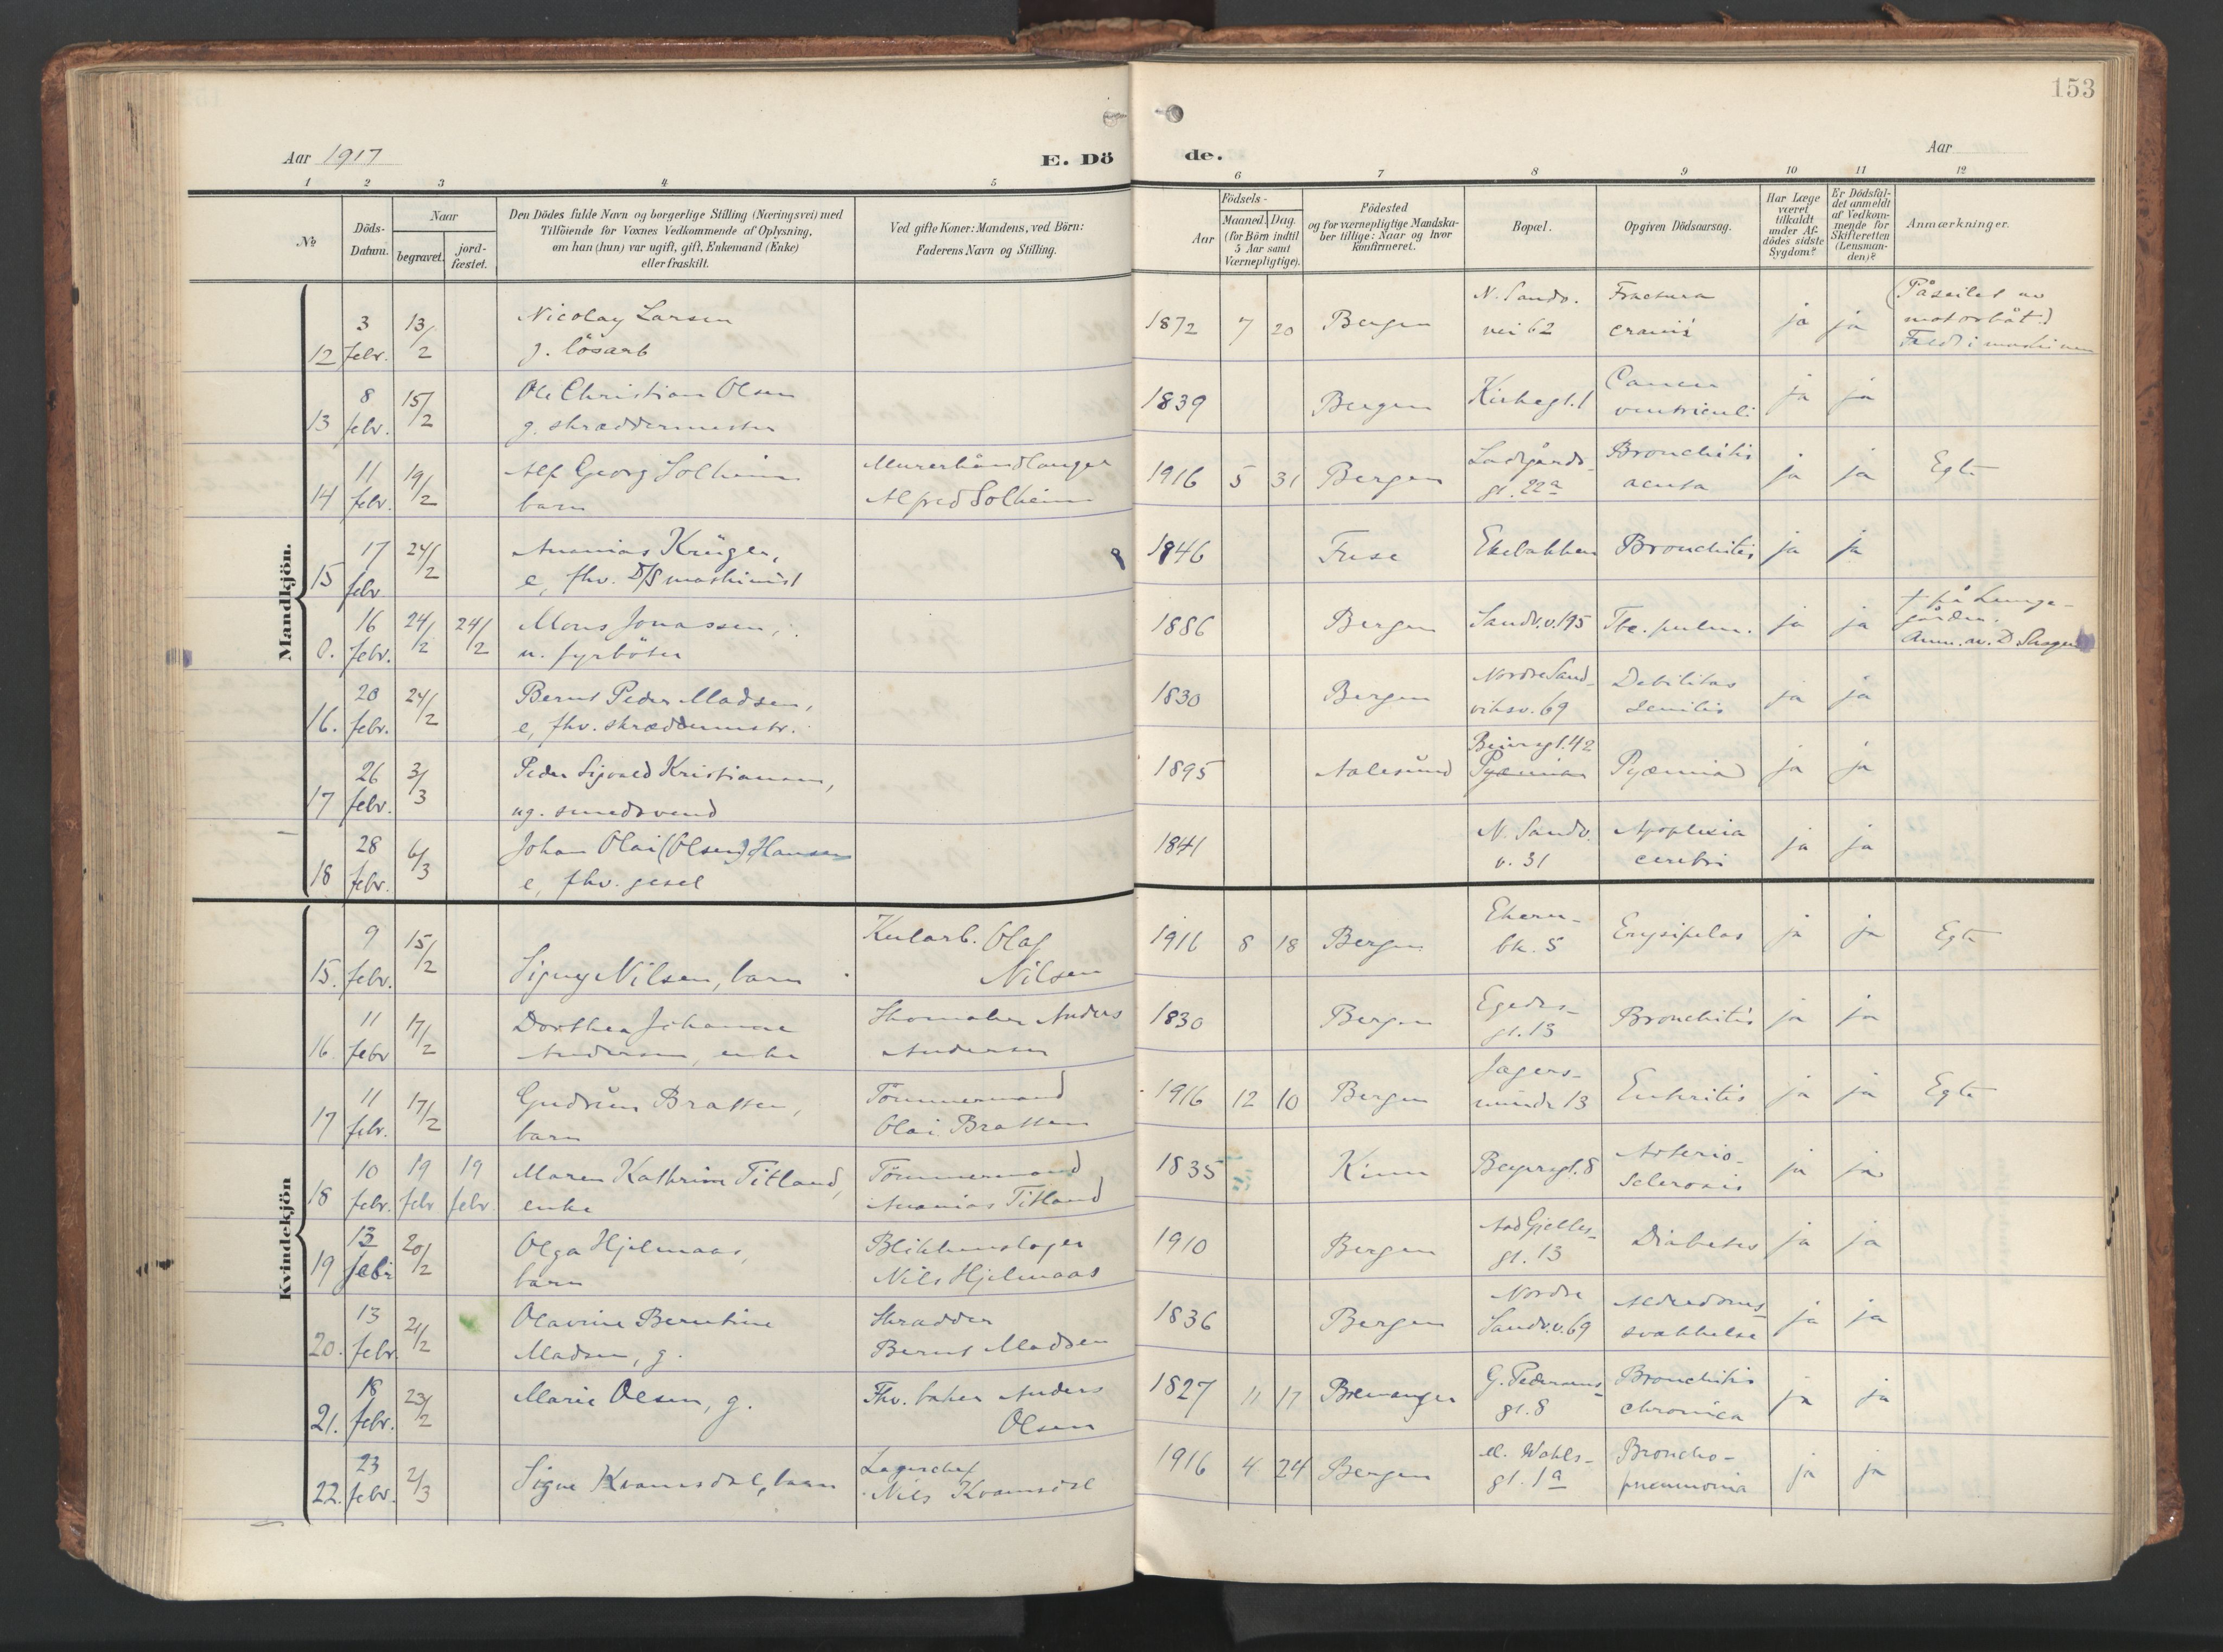 153
Aar 1917
E. Dö
de.
Aar
1 2 3 4 5
6 7 8 9 10 11 12
№
Döds-
Datum.
Naar
begravet.
jord-
fæstet.
Den Dödes fulde Navn og borgerlige Stilling (Næringsvei) med
Tilföiende for Voxnes Vedkommende af Oplysning,
om han (hun) var ugift, gift, Enkemand (Enke)
eller fraskilt.
Ved gifte Koner: Mandens, ved Börn:
Faderens Navn og Stilling.
Födsels-
Aar
Maaned. Dag.
(for Börn indtil
5 Aar samt
Værnepligtige).
Födested
og for værnepligtige Mandska-
ber tillige: Naar og hvor
konfirmeret.
Bopæl.
Opgiven Dödsaarsag.
Har Læge
været
tilkaldt
under Af-
dödes sidste
Sygdom?
Er Dödsfal-
det anmeldt
af Vedkom-
mende for
Skifteretten
(Lensman-
den)?
Anmærkninger.
Mandkjön.
12 3 febr. 13/2
Nicolay Larsen
g. lösarb
1872 7 20 Bergen
N. Sandv.
vei 62
Fractura
cranii
ja ja
(Påseilet av
motorbåt.)
13 8 febr. 15/2
Ole Christian Olsen
g. skræddermester
1839 Bergen Kirkegt. 1
Cancer
ventriculi
ja ja
14 11 febr. 19/2
Alf Georg Solheim
barn
Murerhåndlanger
Alfred Solheim
1916 5 31 Bergen
Ladegårds-
gt. 22a
Bronchitis
acuta
ja ja Egte
15 17 febr 24/2
Ananias Krüger,
e, fhv. D/S maskinist
1846 Fuse Ekebakken Bronchitis ja ja
0. 16 febr. 24/2 24/2
Mons Jonassen,
u. fyrböter
1886 Bergen Sandv.v. 195 Tbc. pulm. ja ja
† på Lunge-
gården.
16. 20 febr. 24/2
Bernt Peder Madsen,
e, fhv. skræddermstr.
1830 Bergen
Nordre Sand-
viksv. 69
Debilitas
senilis
ja ja
17 26 febr. 3/3
Peder Sigvald Kristiansen,
ug. smedsvend
1895 Aalesund
Pyæmia
Pyæmia
ja ja
18 28 febr. 6/3
Johan Olai (Olsen) Hansen
e, fhv. gesel
1841
N. Sandv.
v. 31
Apoplexia
cerebri
ja ja
Kvindekjön
15. 9 febr. 15/2
Signy Nilsen, barn
Kularb. Olaf
Nilsen
1916 8 18 Bergen
Ekern-
bk. 5
Erysipelas
ja ja Egte
16. 11 febr 17/2
Dorthea Johanne
Andersen, enke
Skomaker Anders
Andersen
1830 Bergen
Egedes-
gt. 13
Bronchitis
ja ja
17 11 febr. 17/2
Gudrun Bratten,
barn
Tömmermand
Olai Bratten
1916 12 10 Bergen
Jægers-
minde 13
Enteritis
ja ja Egte
18 10 febr. 19 febr 19 febr.
Maren Kathrine Titland,
enke
Tömmermand
Ananias Titland
1835 Kinn Beyersgt. 8
Arterio-
sclerosis
ja ja
19 13 febr 20/2
Olga Hjelmaas,
barn
Blikkenslager
Nils Hjelmaas
1910 Bergen
Aad Gjelles-
gt. 13
Diabetes
ja ja
20. 13 febr. 21/2
Olavine Berentine
Madsen, g.
Skrædder
Bernt Madsen
1836 Bergen
Nordre
Sandv.v. 69
Alderdoms-
svakkelse
ja ja
21. 18 febr. 23/2
Marie Olsen, g.
Fhv. baker Anders
Olsen
1827 11 17 Bremanger
G. Pedersens-
gt. 8
Bronchitis
chronica
ja ja
22. 23 febr. 2/3
Signe Kvamsdal, barn
Lagerchef
Nils Kvamsdal
1916 4 24 Bergen
M. Wahls-
gt. 1a
Broncho-
pneumonia
ja ja